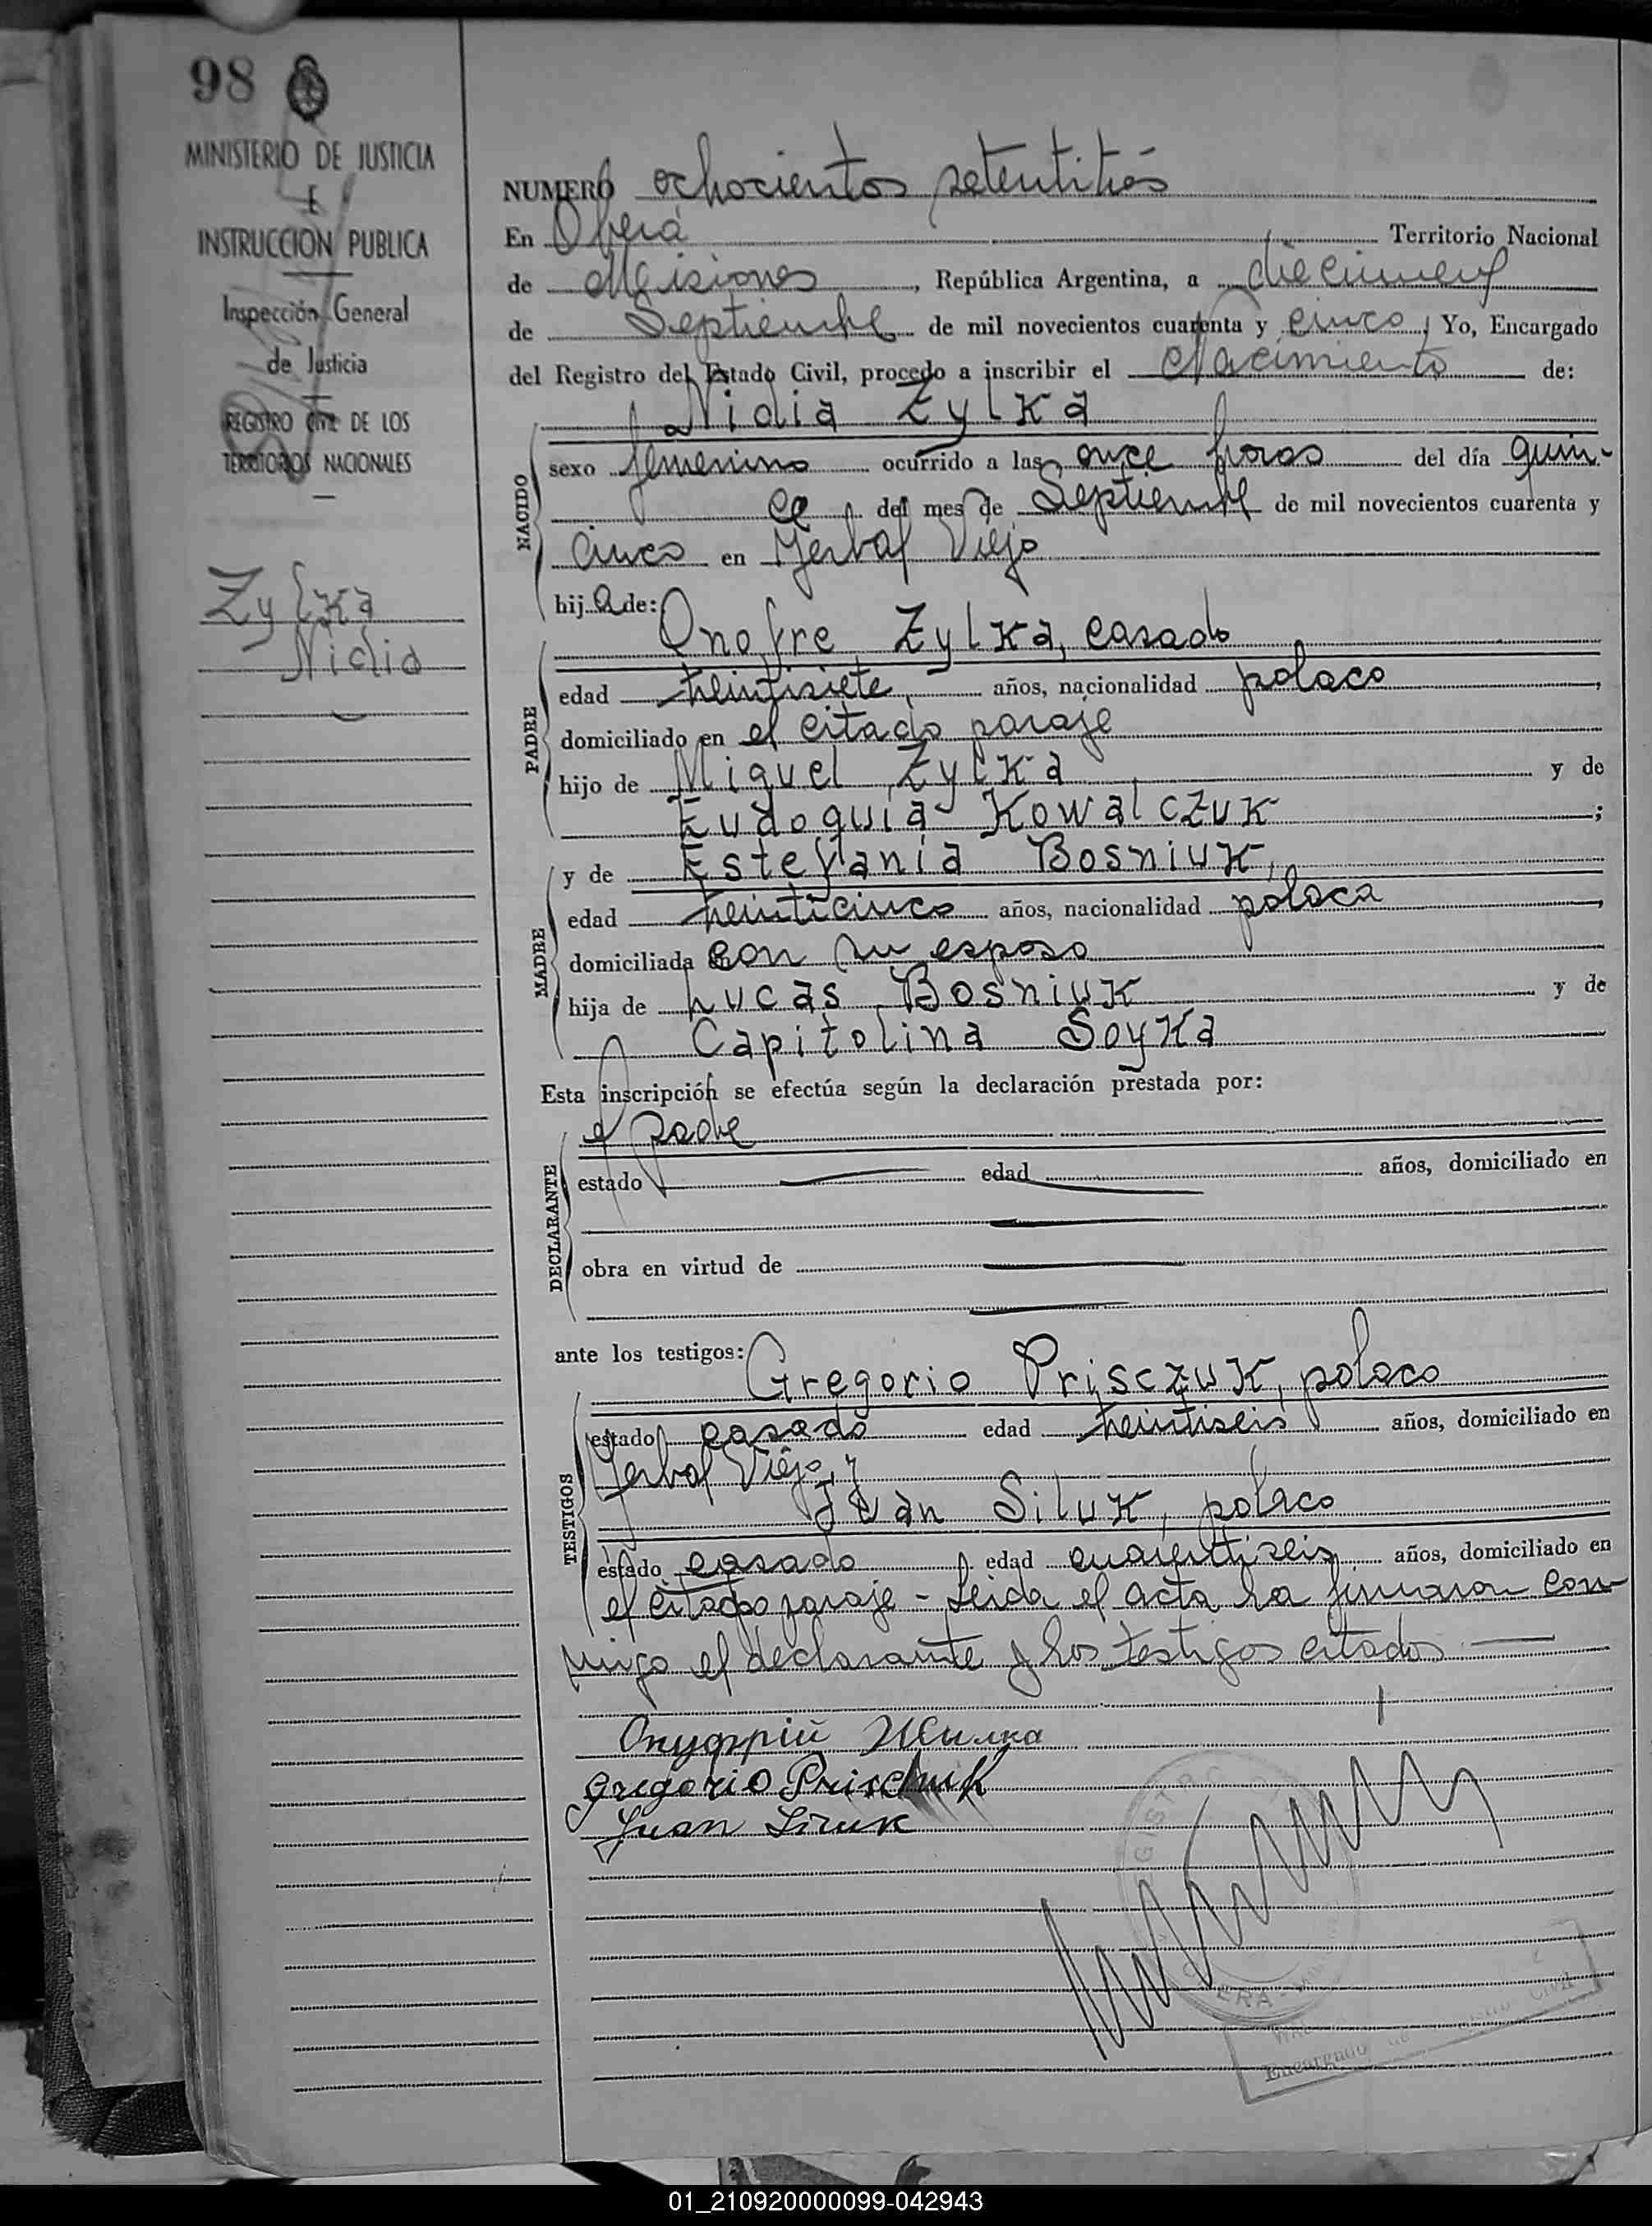 98
MINISTERIO DE JUSTICIA
E
INSTRUCCION PUBLICA
Inspección General
de Justicia
REGISTRO CIVIL DE LOS
TERRITORIOS NACIONALES
Zylka
Nidia
NUMERO ochocientos setentitrés
En Oberá Territorio Nacional
de Misiones, República Argentina, a diecinueve
de Septiembre de mil novecientos cuarenta y cinco, Yo, Encargado
del Registro del Estado Civil, procedo a inscribir el Nacimiento de:
Nidia Zylka
NACIDO
sexo femenino ocurrido a las once horas del día quin-
ce del mes de Septiembre de mil novecientos cuarenta y
cinco en Yerbal Viejo
hija de:
Onofre Zylka, casado
PADRE
edad treintisiete, años, nacionalidad polaco,
domiciliado en el citado paraje
hijo de Miguel Zylka y de
Eudoquia Kowalczuk;
y de Estefania Bosniuk,
MADRE
edad treinticinco años, nacionalidad polaca,
domiciliada con su esposo
hija de Lucas Bosniuk y de
Capitolina Soyka
Esta inscripción se efectúa según la declaración prestada por:
el padre
DECLARANTE
estado edad años, domiciliado en
obra en virtud de
ante los testigos:
Gregorio Prisczuk, polaco
TESTIGOS
estado casado edad treintiseis años, domiciliado en
Yerbal Viejo, y
Juan Siluk, polaco
estado casado edad cuarentiseis años, domiciliado en
el citado paraje - Leida el acta la firmaron con-
migo el declarante y los testigos citados
Онуфрій Жилка
Gregorio Prischuk
Juan Siluk
Encargado Civil
01_210920000099-042943